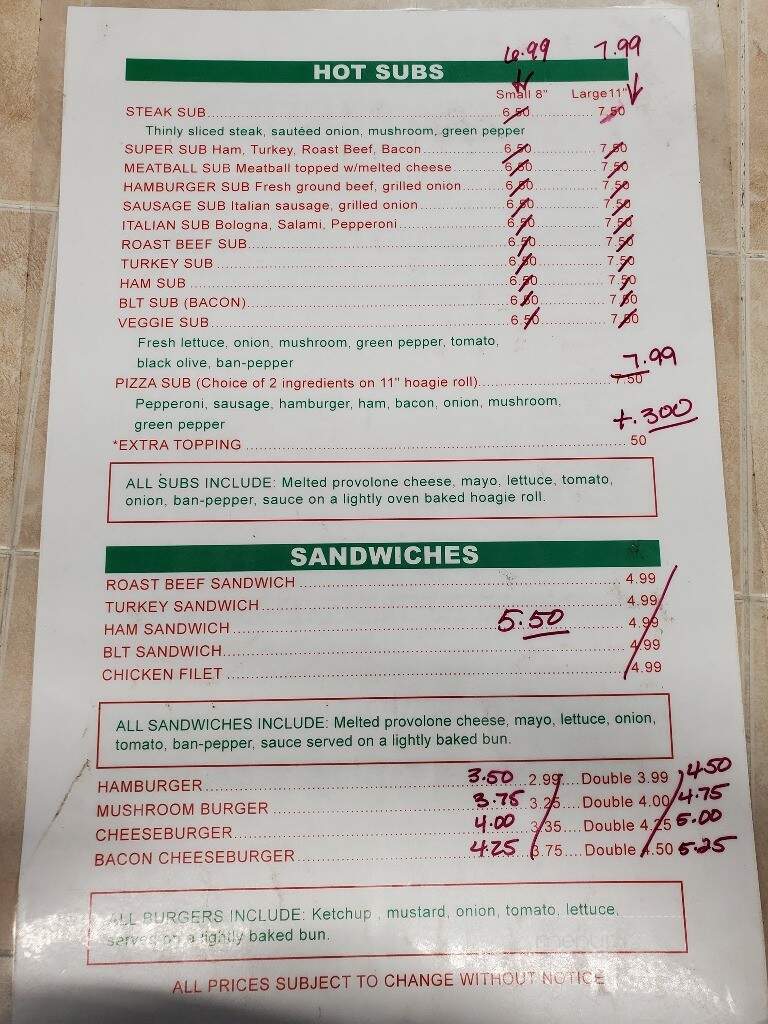 6.99 7.99
HOT SUBS
Small 8" Large 11"
STEAK SUB 6.50 7.50
Thinly sliced steak, sautéed onion, mushroom, green pepper
SUPER SUB Ham, Turkey, Roast Beef, Bacon 6.50 7.50
MEATBALL SUB Meatball topped w/melted cheese 6.50 7.50
HAMBURGER SUB Fresh ground beef, grilled onion 6.50 7.50
SAUSAGE SUB Italian sausage, grilled onion 6.50 7.50
ITALIAN SUB Bologna, Salami, Pepperoni 6.50 7.50
ROAST BEEF SUB 6.50 7.50
TURKEY SUB 6.50 7.50
HAM SUB 6.50 7.50
BLT SUB (BACON) 6.50 7.50
VEGGIE SUB 6.50 7.50
Fresh lettuce, onion, mushroom, green pepper, tomato,
black olive, ban-pepper
7.99
PIZZA SUB (Choice of 2 ingredients on 11" hoagie roll) 7.50
Pepperoni, sausage, hamburger, ham, bacon, onion, mushroom,
green pepper
+.300
*EXTRA TOPPING 50
ALL SUBS INCLUDE: Melted provolone cheese, mayo, lettuce, tomato,
onion, ban-pepper, sauce on a lightly oven baked hoagie roll.
SANDWICHES
ROAST BEEF SANDWICH 4.99
TURKEY SANDWICH 4.99
HAM SANDWICH 5.50 4.99
BLT SANDWICH 4.99
CHICKEN FILET 4.99
ALL SANDWICHES INCLUDE: Melted provolone cheese, mayo, lettuce, onion,
tomato, ban-pepper, sauce served on a lightly baked bun.
HAMBURGER 3.50 2.99 Double 3.99 4.50
MUSHROOM BURGER 3.75 3.25 Double 4.00 4.75
CHEESEBURGER 4.00 3.35 Double 4.25 5.00
BACON CHEESEBURGER 4.25 3.75 Double 4.50 5.25
ALL BURGERS INCLUDE: Ketchup , mustard, onion, tomato, lettuce,
served on a lightly baked bun.
ALL PRICES SUBJECT TO CHANGE WITHOUT NOTICE